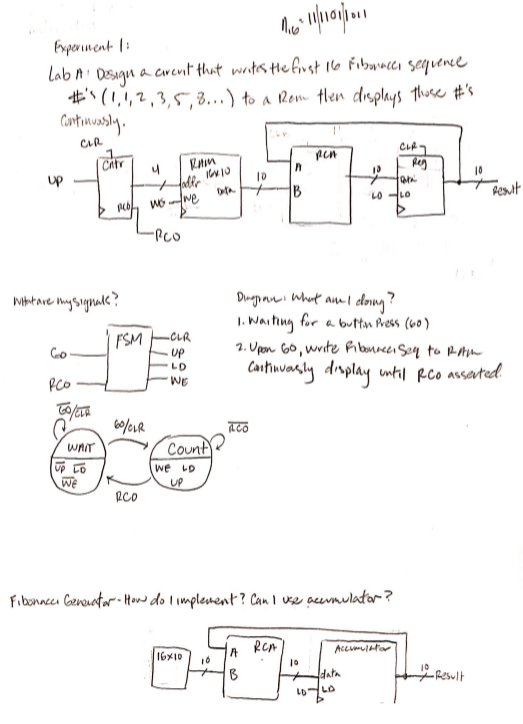 Experiment 1:
Lab A: Design a circuit that writes the first 16 Fibonacci sequence
#'s (1,1,2,3,5,8...) to a Ram then displays those #'s
Continuously.
CLR
Cntr
UP
RCO
RCO
4
RAM
16x10
addr
Data
WE
WE
10
RCA
A
B
10
CLR
Reg
Data
LO
LD
10
Result
What are my signals?
FSM
Go
RCO
CLR
UP
LD
WE
Diagram: What am I doing?
1. Waiting for a button Press (GO)
2. Upon GO, write Fibonacci Seq to RAM
Continuously display until RCO asserted.
GO/CLR
GO/CLR
RCO
WAIT
UP LD
WE
Count
WE LD
UP
RCO
Fibonacci Generator - How do I implement? Can I use accumulator?
16x10
10
A RCA
B
10
Accumulator
data
LD
LD
10
Result